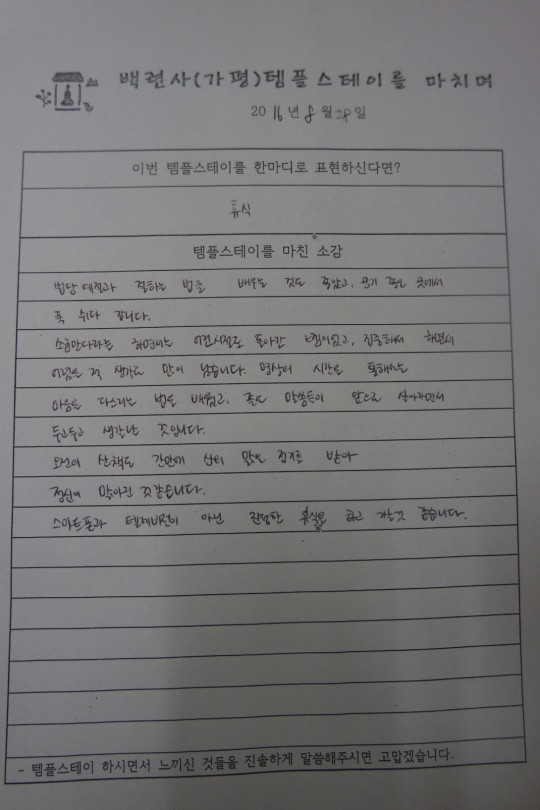 백련사(가평)템플스테이를 마치며
2016년 8월 28일
이번 템플스테이를 한마디로 표현하신다면?
휴식
템플스테이를 마친 소감
법당 예절과 절하는 법을 배우는 것도 좋았고, 공기 좋은 곳에서
푹 쉬다 갑니다.
소금만다라는 하면서는 어린시절로 돌아간 느낌이었고, 집중해서 하면서
어렸을 적 생각도 많이 났습니다. 명상의 시간을 통해서는
마음을 다스리는 법을 배웠고, 좋은 말씀들이 앞으로 살아가면서
두고두고 생각날 것입니다.
오전의 산책도 간만에 산의 맑은 정기를 받아
정신이 맑아진 것 같습니다.
스마트폰과 텔레비전이 아닌 진정한 휴식을 하고 가는것 같습니다.
- 템플스테이 하시면서 느끼신 것들을 진솔하게 말씀해주시면 고맙겠습니다.